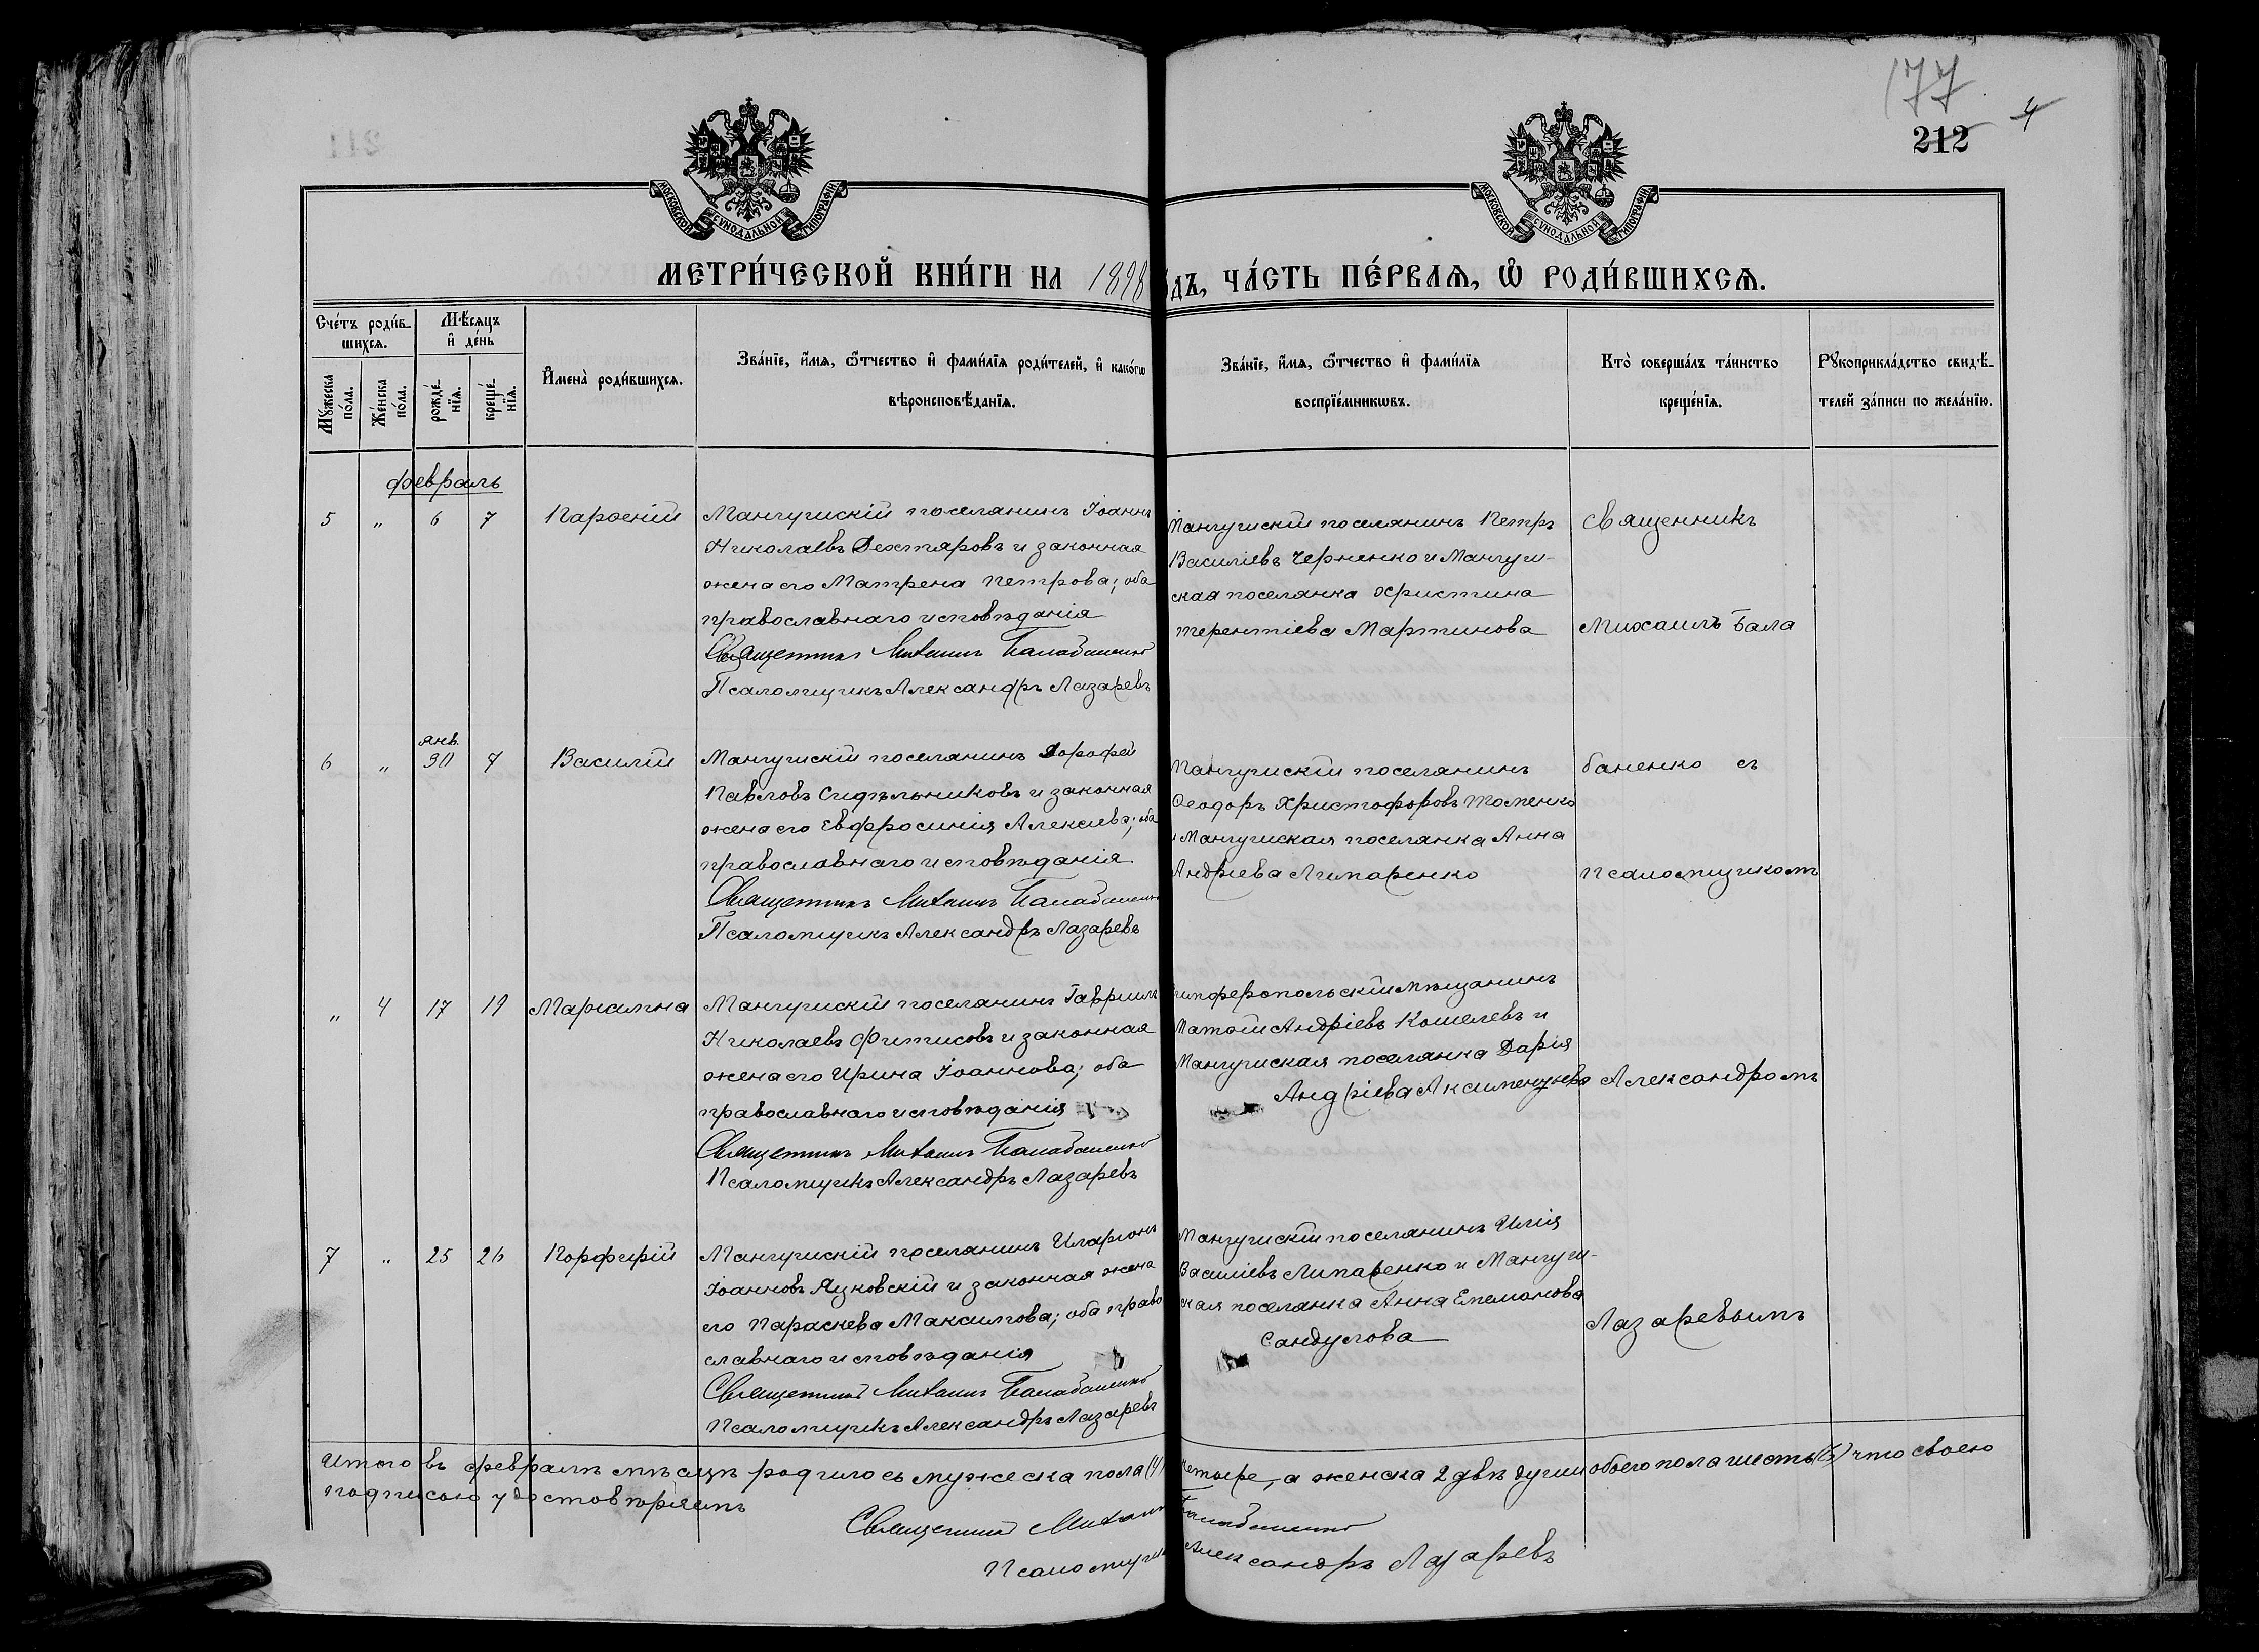 177
4
212
МОСКОВСКОЙ СѴНОДАЛЬНОЙ ТИПОГРАФІИ
МОСКОВСКОЙ СѴНОДАЛЬНОЙ ТИПОГРАФІИ
МЕТРИ́ЧЕСКОЙ КНИ́ГИ НА 1898
ДЪ, ЧА́СТЬ ПЕ́РВАѦ, Ѡ҆ РОДИ́ВШИХСѦ.
Сче́тъ роди́вшихсѧ.
Мꙋ́жеска по́ла.
Же́нска по́ла.
Мѣ́сѧцъ и҆ де́нь
рожде́нїѧ.
креще́нїѧ.
И҆мена̀ роди́вшихсѧ.
Зва́нїе, и҆́мѧ, ѻ҆́тчество и҆ фами́лїѧ роди́телей, и҆ како́гѡ
вѣроисповѣ́данїѧ.
Зва́нїе, и҆́мѧ, ѻ҆́тчество и҆ фами́лїѧ
воспрїе́мникѡвъ.
Кто̀ соверша́лъ та́инство
креще́нїѧ.
Рꙋкоприкла́дство свидѣ́-
телей за́писи по жела́нїю.
февраль
5 " 6 7 Парѳеній
Мангушскій поселянинъ Іоаннъ
Николаевъ Дехтяровъ и законная
жена его Матрена Петрова; оба
православнаго исповѣданія
Священникъ Михаилъ Балабаненко
Псаломщикъ Александръ Лазаревъ
Мангушскій поселянинъ Петръ
Василіевъ Черненко и Мангуш-
ская поселянка Христина
Терентіева Мартинова
Священникъ
Михаилъ Бала
6 " янв. 30 7 Василій
Мангушскій поселянинъ Дорофей
Павловъ Сидѣльниковъ и законная
жена его Евфросинія Алексіева; оба
православнаго исповѣданія
Священникъ Михаилъ Балабаненко
Псаломщикъ Александръ Лазаревъ
Мангушскій поселянинъ
Ѳеодоръ Христофоровъ Томенко
и Мангушская поселянка Анна
Андріева Липаренко
баненко съ
псаломщикомъ
" 4 17 19 Маріамна
Мангушскій поселянинъ Гавріилъ
Николаевъ Фитисовъ и законная
жена его Ирина Іоаннова; оба
православнаго исповѣданія
Священникъ Михаилъ Балабаненко
Псаломщикъ Александръ Лазаревъ
Симферопольскій мѣщанинъ
Матѳій Андріевъ Кошелевъ и
Мангушская поселянка Дарія
Андріева
Александромъ
7 " 25 26 Порфирій
Мангушскій поселянинъ Иларіонъ
Іоанновъ Яцковскій и законная жена
его Параскева Максимова; оба право
славнаго исповѣданія
Священникъ Михаилъ Балабаненко
Псаломщикъ Александръ Лазаревъ
Мангушскій поселянинъ Илія
Василіевъ Липаренко и Мангуш-
ская поселянка Анна
Сандулова
Лазаревымъ
Итого въ февралѣ мѣсяцѣ родилось мужеска пола (4) четыре, а женска 2 двѣ души обоего пола шесть (6) что своею
подписью удостовѣряемъ
Священникъ Михаилъ Балабаненко
Псаломщикъ Александръ Лазаревъ